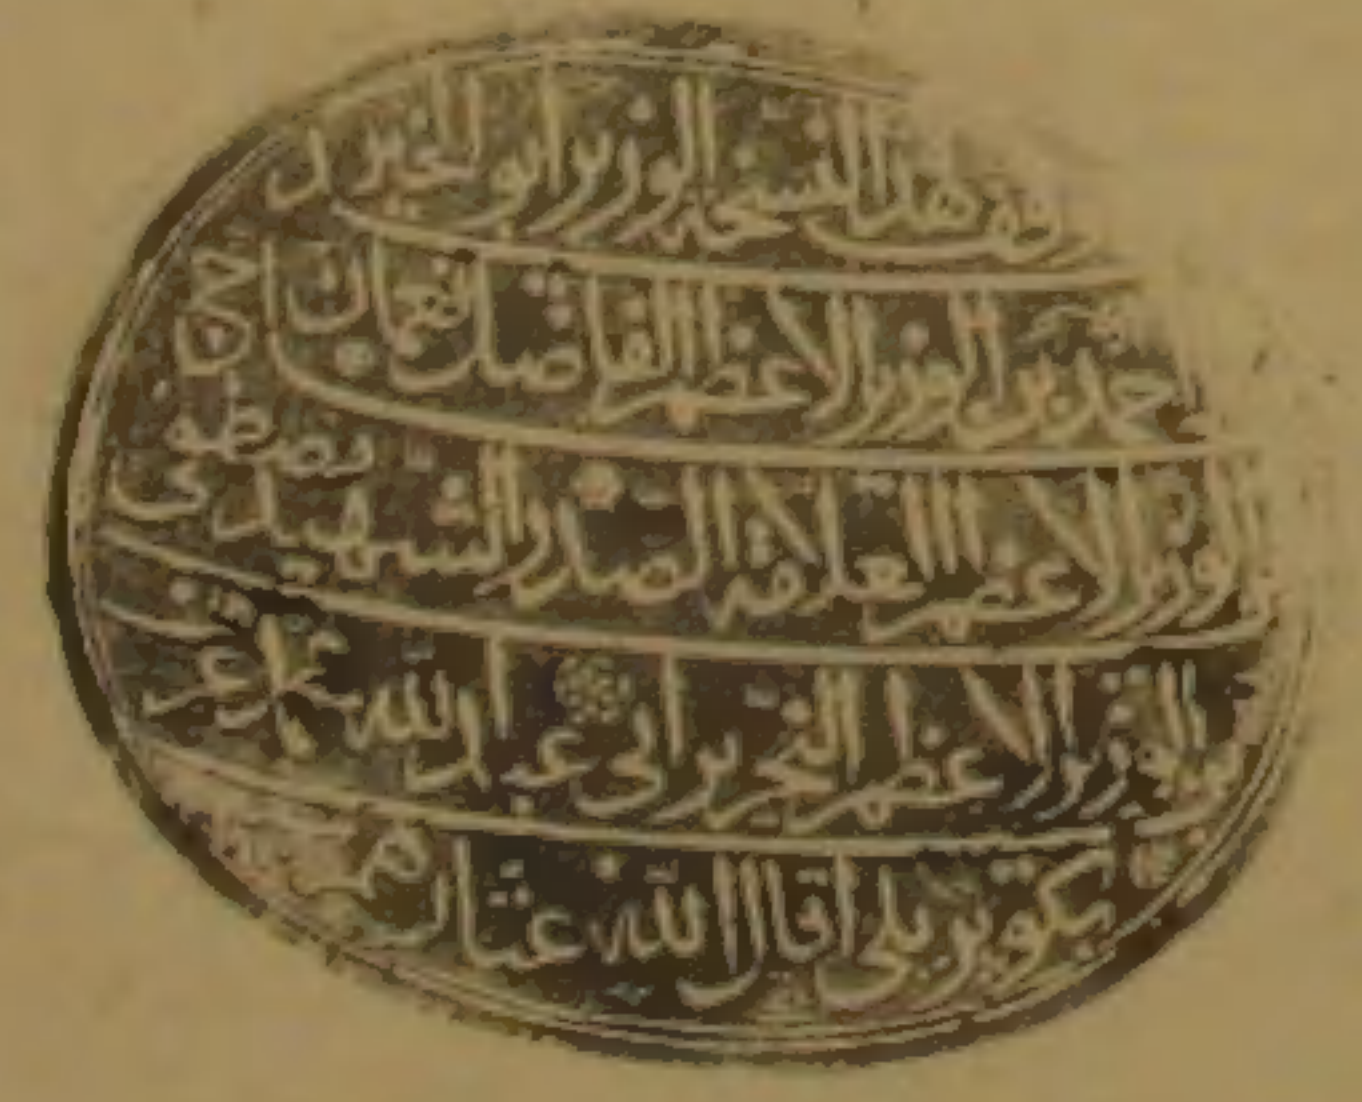 وقف هذا النسخة الوزير ابو الخير
احمد بن الوزير الاعظم الفاضل نعمان
الوزير الاعظم العلامة الصدر الشهيد مصطفى
بن الوزير الاعظم النحرير ابى عبد الله محمد عرف
بكوپريلى اقال الله عثارهم